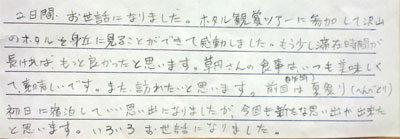 二日間、お世話になりました。ホタル観賞ツアーに参加して沢山
のホタルを身近に見ることができて感動しました。もう少し滞在時間が
長ければもっと良かったと思います。草円さんの食事はいつも美味しく
て素晴しいです。また訪れたいと思います。前回は夏祭り(べんてん)
初日に宿泊していい思い出になりましたが、今回も新たな思い出が出来た
と思います。いろいろお世話になりました。